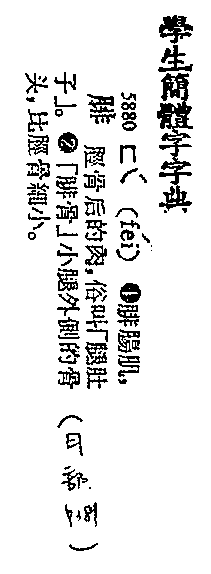 學生簡體字字典
5880 ㄈㄟˊ (féi) ❶腓腸肌,
腓 脛骨后的肉,俗叫「腿肚
子」。❷「腓骨」小腿外側的骨
头,比脛骨細小。